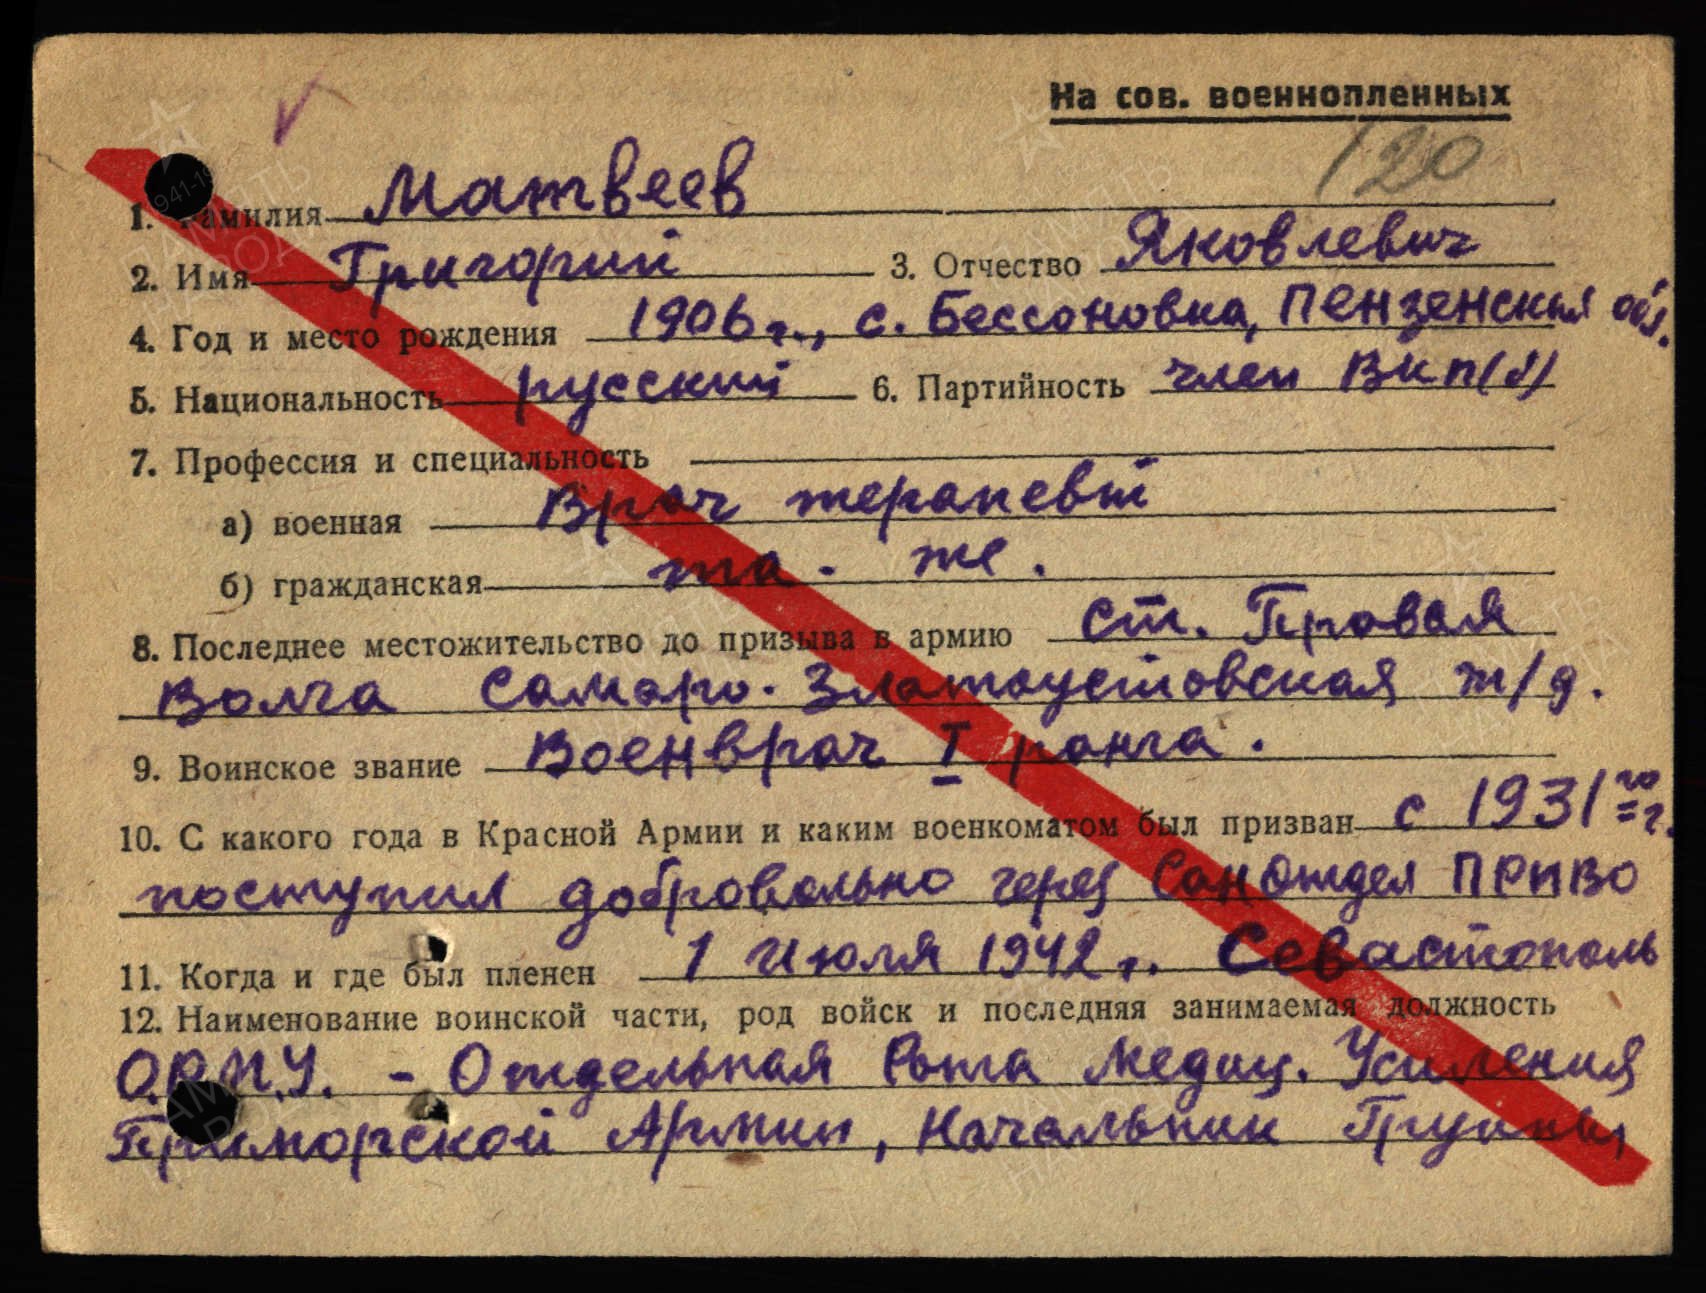 На сов. военнопленных
120
1. Фамилия Матвеев
2. Имя Григорий 3. Отчество Яковлевич
4. Год и место рождения 1906 г., с. Бессоновка, Пензенская обл.
5. Национальность русский 6. Партийность член ВКП(б)
7. Профессия и специальность
а) военная Врач терапевт
б) гражданская та-же.
8. Последнее местожительство до призыва в армию ст. Правая
Волга Самаро-Златоустовская ж/д.
9. Воинское звание Военврач I ранга.
10. С какого года в Красной Армии и каким военкоматом был призван с 1931го г.
поступил добровольно через СанОтдел ПРИВО
11. Когда и где был пленен 1 Июля 1942 г. Севастополь
12. Наименование воинской части, род войск и последняя занимаемая должность
О.Р.М.У. - Отдельная Рота Медиц. Усиления
Приморской Армии, Начальник Группы